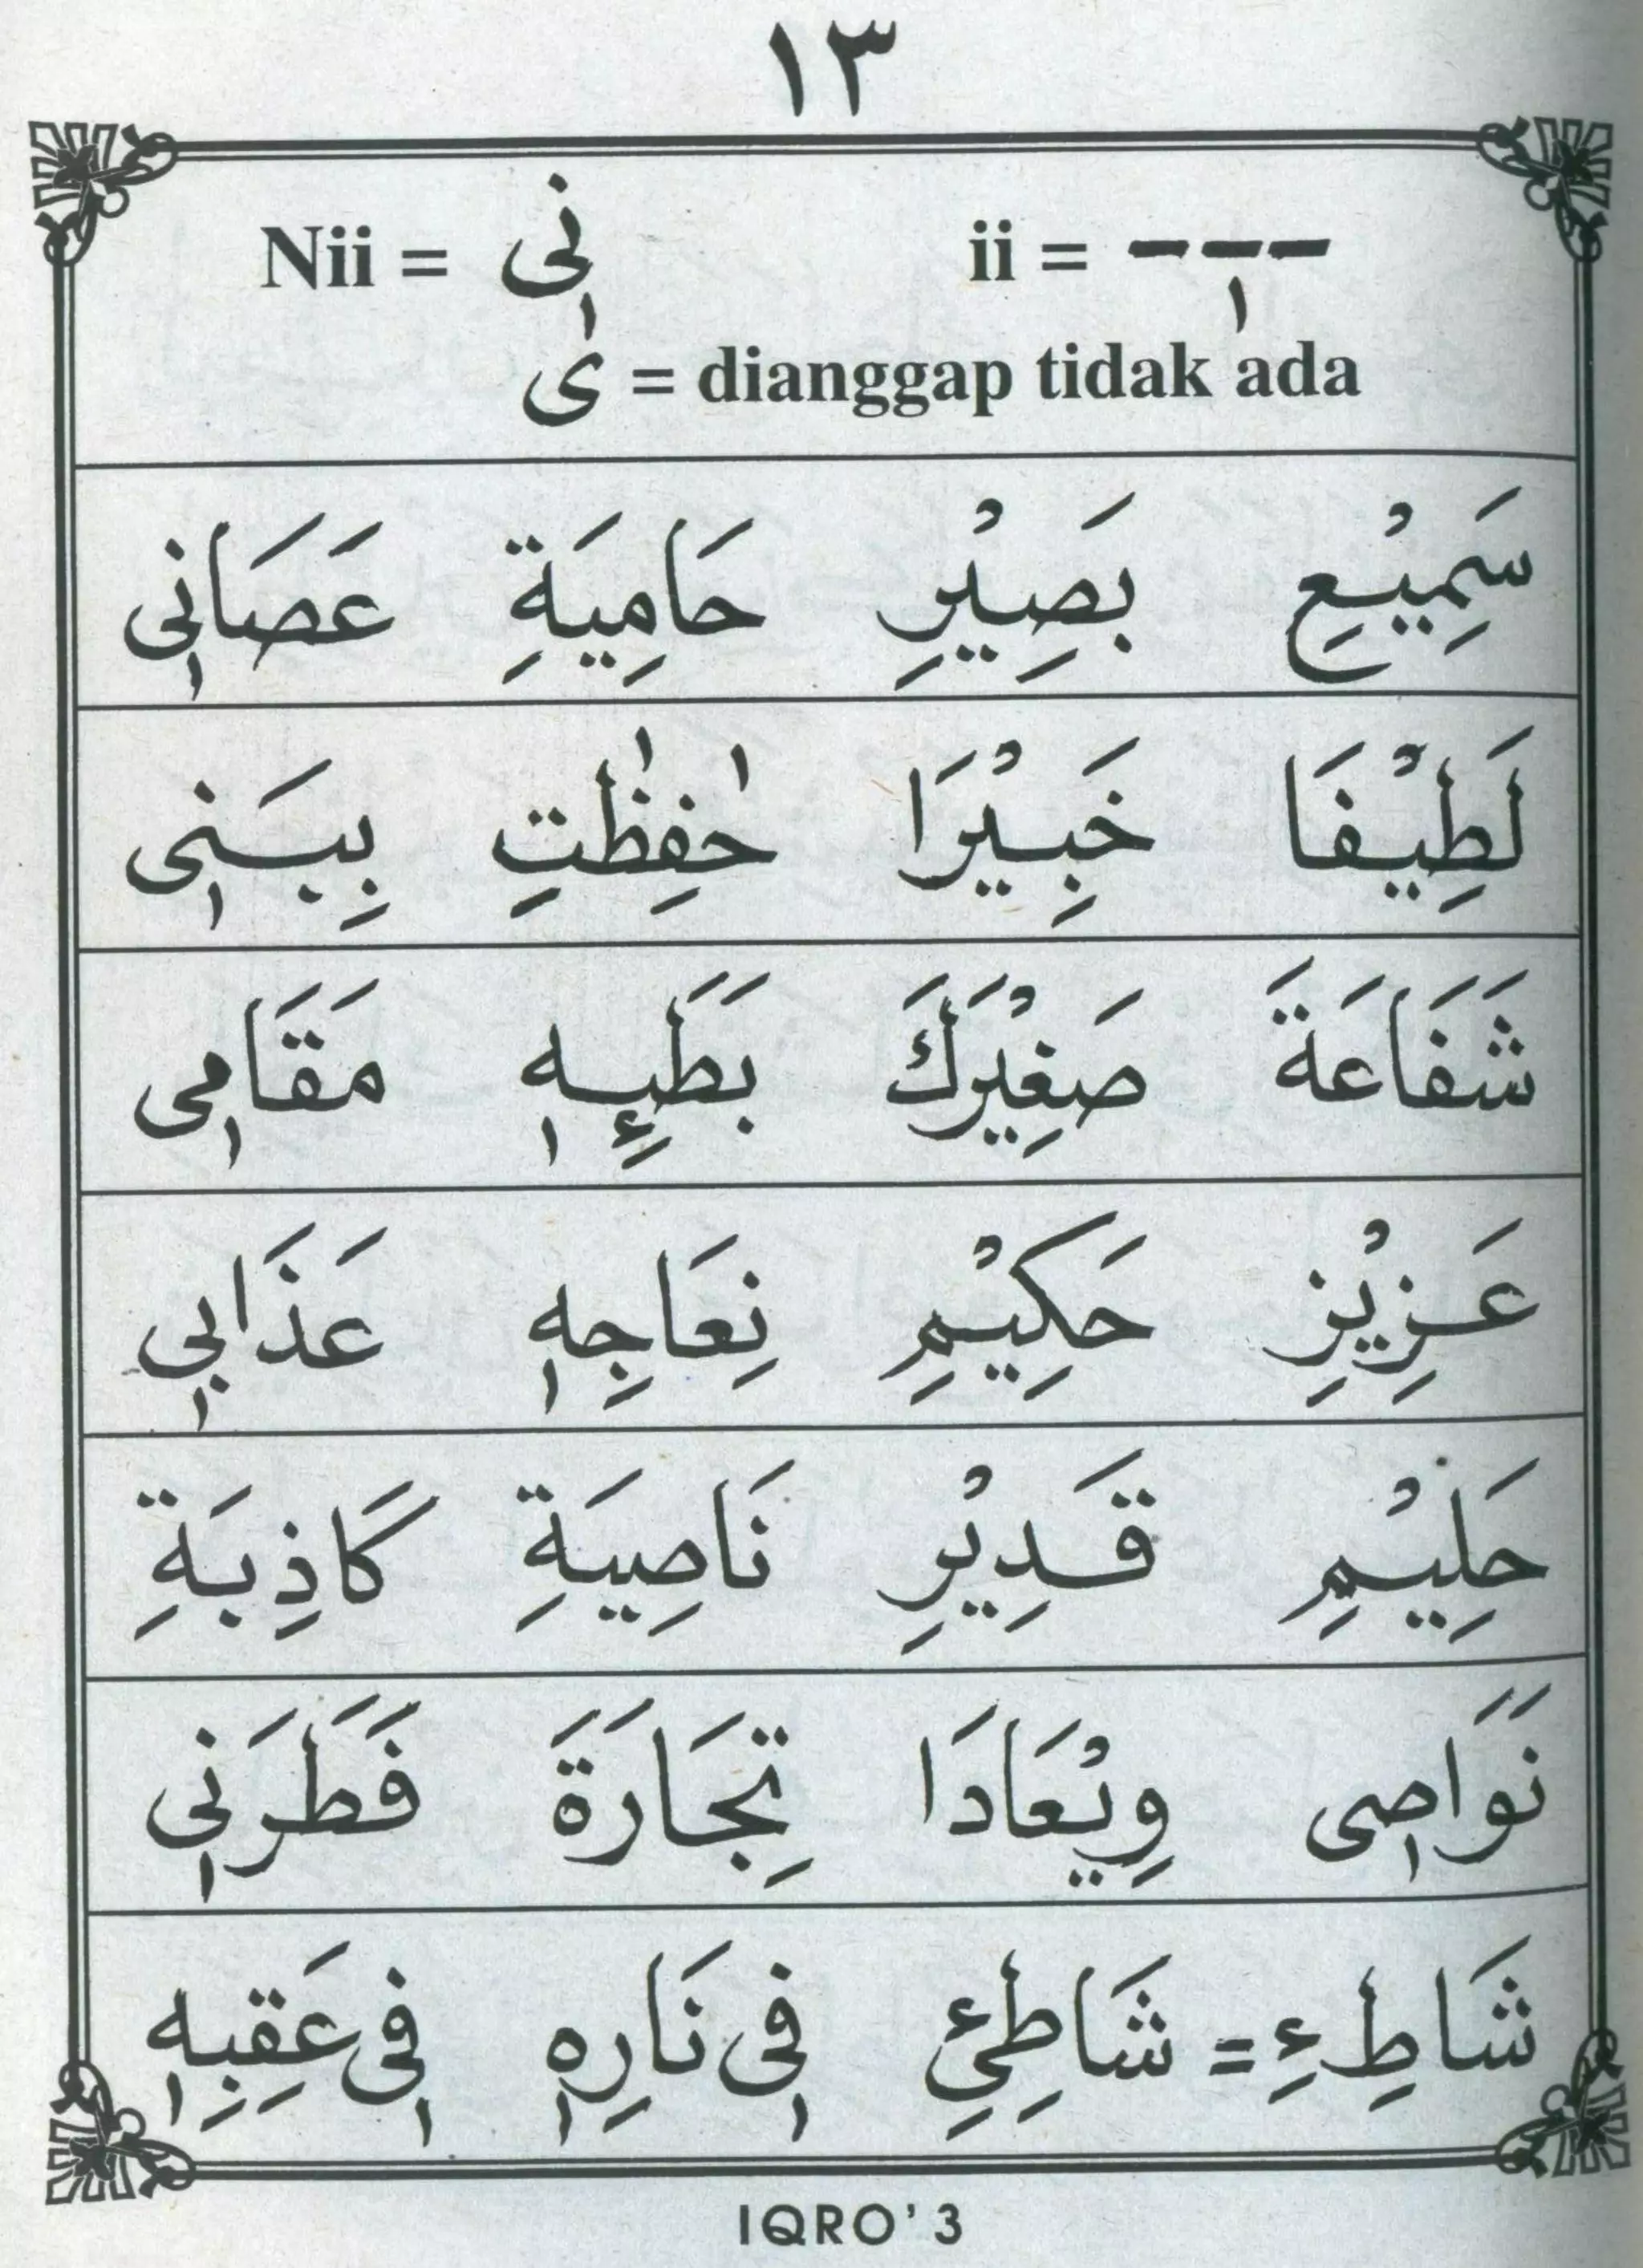 ١٣
Nii = نٖى ii = ---ٖ
ى = dianggap tidak ada
سَمِيْعِ بَصِيْرِ حَامِيَةِ عَصَانٖى
لَطِيْفَا خَبِيْرَا حٰفِظٰتِ بِيَنٖى
شَفَاعَةَ صَغِيْرَكَ بَطَئِهٖ مَقَامٖى
عَزِيْزِ حَكِيْمِ نِعَاجِهٖ عَذَابٖى
حَلِيْمِ قَدِيْرِ نَاصِيَةِ كَاذِبَةِ
نَوَاصٖى وِيْعَادَا تِجَارَةَ فَطَرَنٖى
شَاطِءِ = شَاطِئِ فٖى نَارِهٖ فٖى عَقِبِهٖ
IQRO' 3